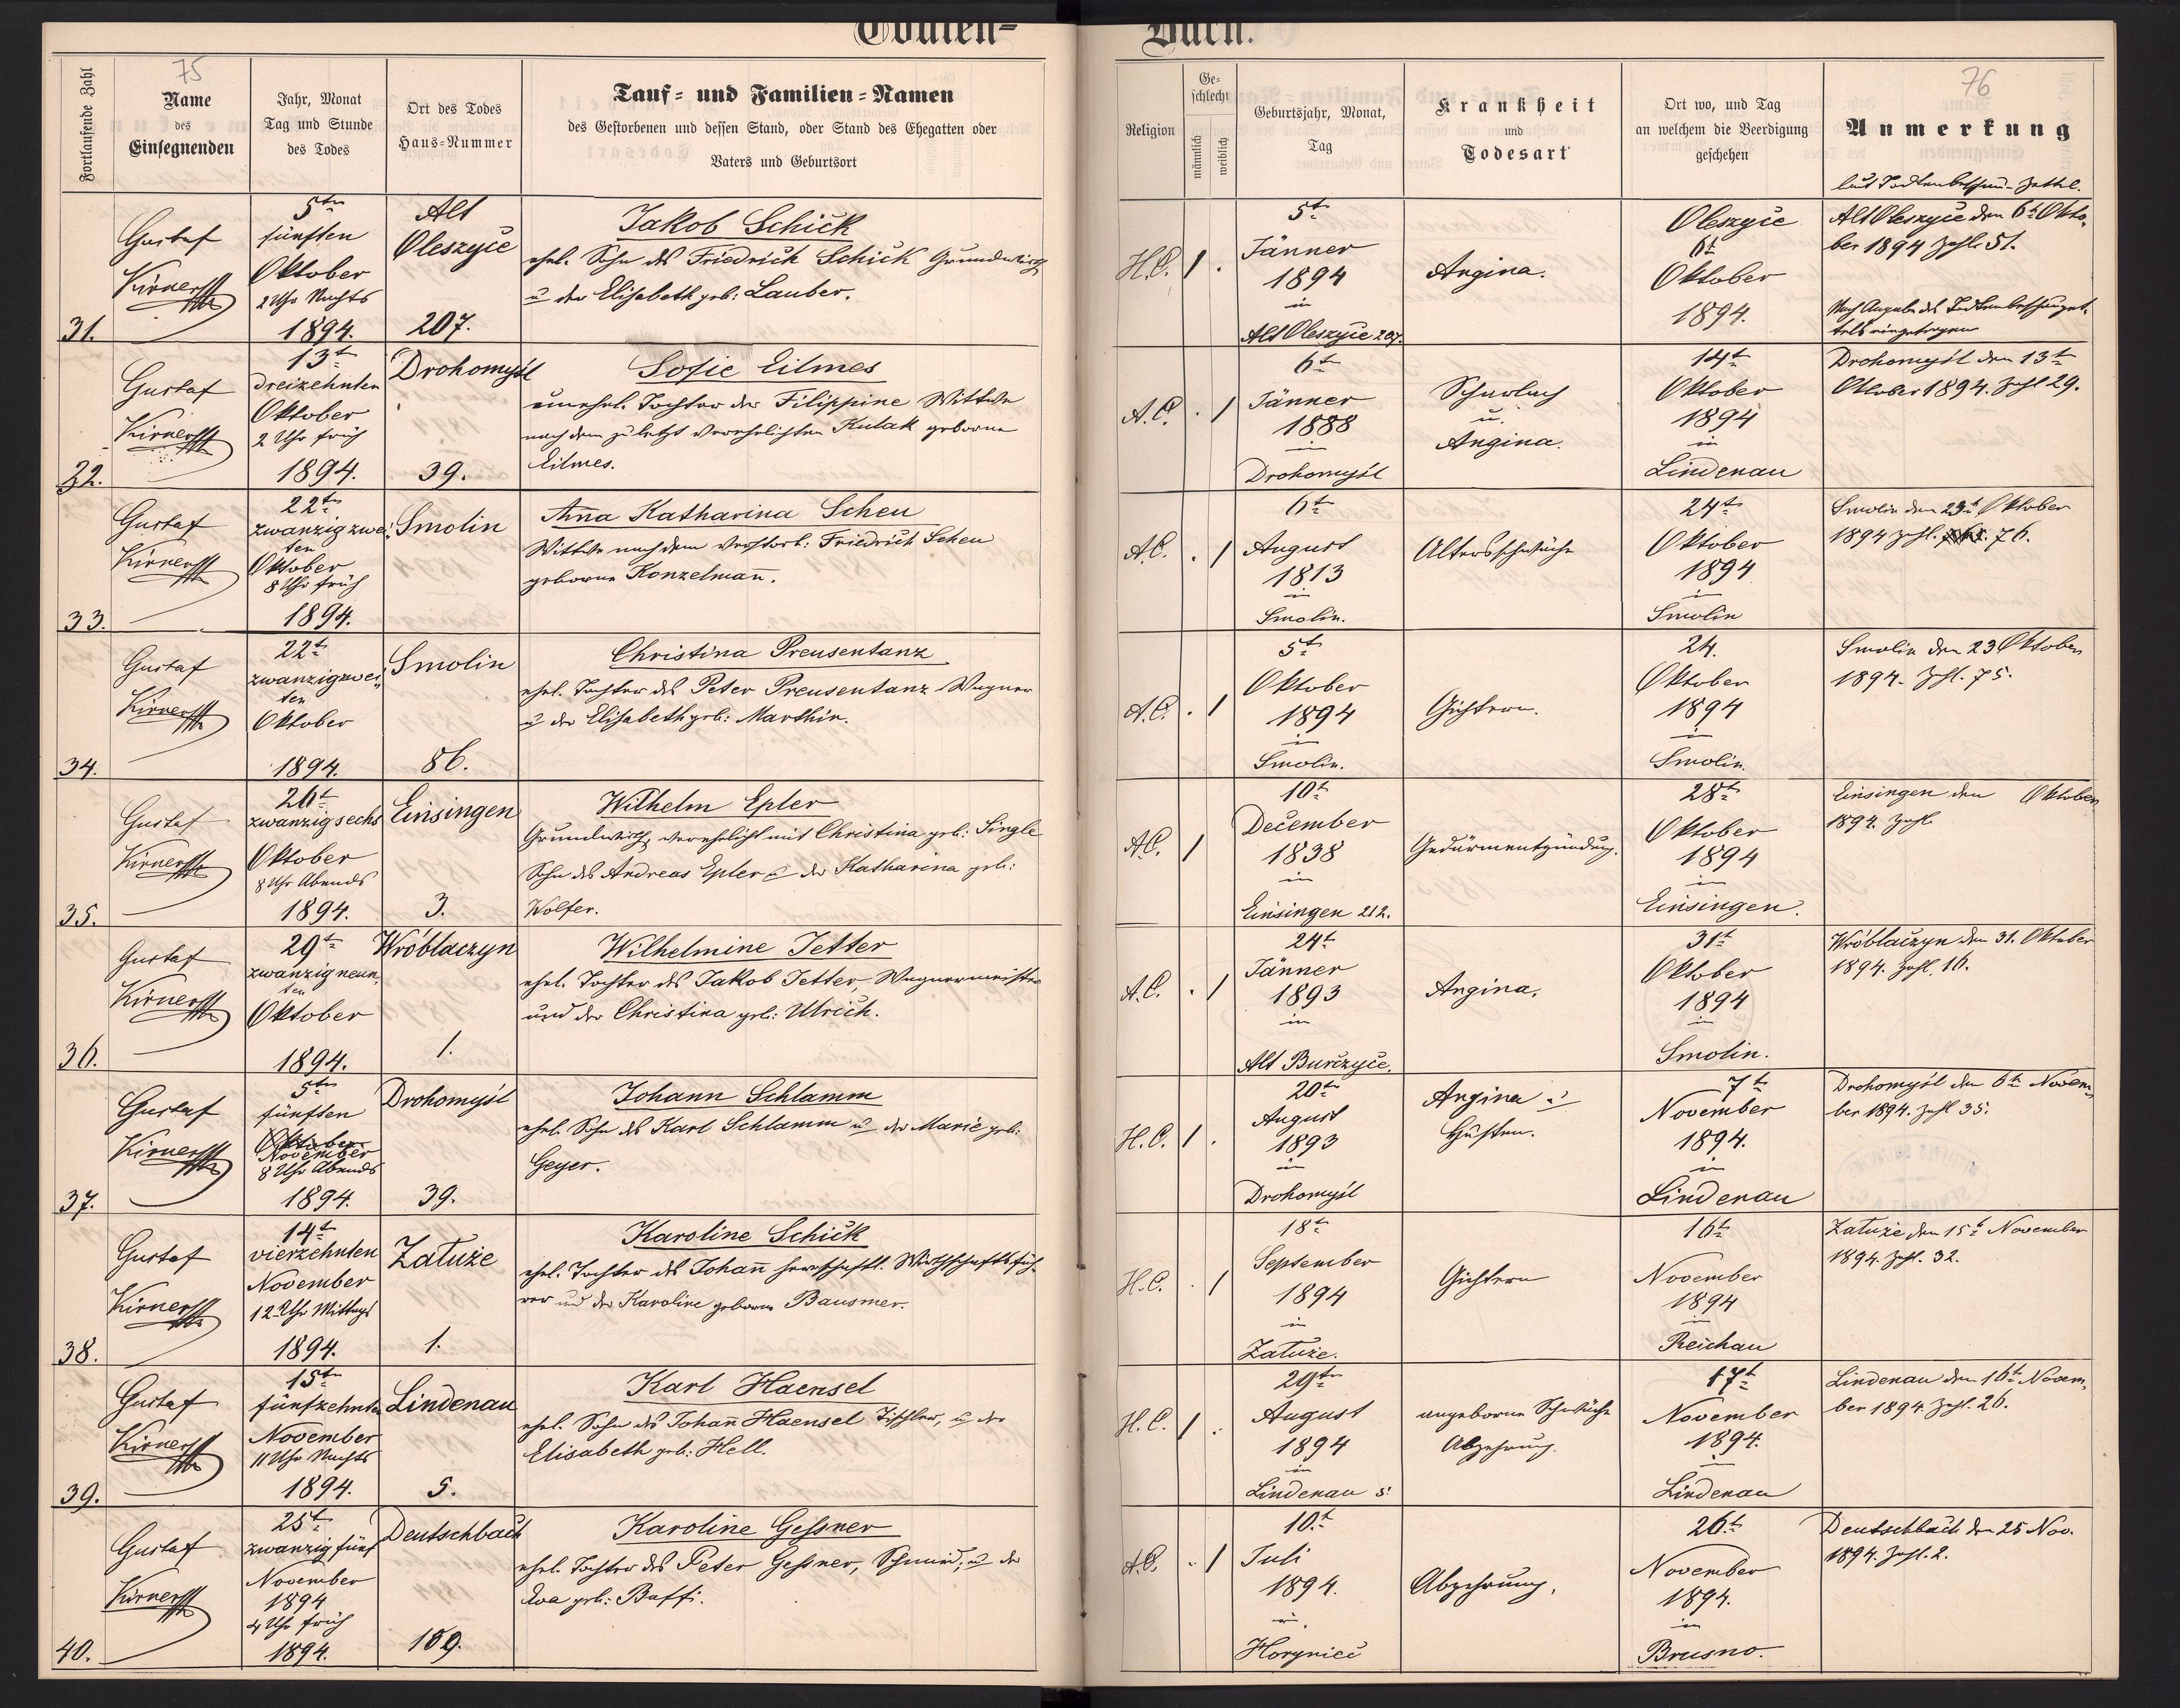 Todten-
Buch.
75
76
Fortlaufende Zahl
Name
des
Einsegnenden
Jahr, Monat
Tag und Stunde
des Todes
Ort des Todes
Haus-Nummer
Tauf- und Familien-Namen
des Gestorbenen und dessen Stand, oder Stand des Ehegatten oder
Vaters und Geburtsort
Religion
Ge-
schlecht
männlich
weiblich
Geburtsjahr, Monat,
Tag
Krankheit
und
Todesart
Ort wo, und Tag
an welchem die Beerdigung
geschehen
Anmerkung
laut Todtenbeschau-Zettel.
31.
Gustaf
Kirner
5ten
fünften
Oktober
2 Uhr Nachts
1894.
Alt
Oleszyce
207.
Jakob Schick
ehel. Sohn des Friedrich Schick Grundwirth
u der Elisabeth geb: Lauber.
H.C.
1
.
5t
Jänner
1894
in
Alt Oleszyce 207.
Angina.
Oleszyce
6t
Oktober
1894.
Alt Oleszyce den 6t Okto-
ber 1894 Zahl. 51.
Nach Angabe des Todtenbeschauzet-
tels eingetragen
32.
Gustaf
Kirner
13t
dreizehnten
Oktober
2 Uhr früh
1894.
Drohomyśl
39.
Sofie Eilmes
unehel. Tochter der Filippine Wittwe
nach dem zuletzt verehelichten Kulak geborene
Eilmes.
A.C.
.
1
6t
Jänner
1888
in
Drohomyśl
Scharlach
u.
Angina.
14t
Oktober
1894
in
Lindenau
Drohomyśl den 13t
Oktober 1894. Zahl 29.
33.
Gustaf
Kirner
22t
zwanzigzwei-
ten
Oktober
8 Uhr früh
1894.
Smolin
Anna Katharina Scheu
Wittwe nach dem verstorb: Friedrich Scheu
geborene Konzelmañ.
A.C.
.
1
6t
August
1813
in
Smolin.
Altersschwäche
24t
Oktober
1894
in
Smolin
Smolin den 23t Oktober
1894 Zahl. 76.
34.
Gustaf
Kirner
22t
zwanzigzwei-
ten
Oktober
1894.
Smolin
86.
Christina Preusentanz
ehel. Tochter des Peter Preusentanz Wagner
u der Elisabeth geb: Marthin.
A.C.
.
1
5t
Oktober
1894
in
Smolin.
Gichtern.
24.
Oktober
1894
in
Smolin.
Smolin den 23 Oktober
1894. Zahl. 75.
35.
Gustaf
Kirner
26t
zwanzigsechs
Oktober
8 Uhr Abends
1894.
Einsingen
3.
Wilhelm Epler
Grundwirth, verehelicht mit Christina geb: Single
Sohn des Andreas Epler u der Katharina geb:
Wolfer.
A.C.
1
10t
December
1838
in
Einsingen 212.
Gedärmentzündung.
28t
Oktober
1894
in
Einsingen.
Einsingen den Oktober
1894. Zahl.
36.
Gustaf
Kirner
29t
zwanzigneun-
ten
Oktober
1894.
Wróblaczyn
1.
Wilhelmine Jetter
ehel. Tochter des Jakob Jetter, Wagnermeister
und der Christina geb: Ulrich.
A.C.
.
1
24t
Jänner
1893
in
Alt Burczyce.
Angina.
31t
Oktober
1894
in
Smolin.
Wróblaczyn den 31. Oktober
1894. Zahl. 16.
37.
Gustaf
Kirner
5ten
fünften
Oktober
November
8 Uhr Abends
1894.
Drohomyśl
39.
Johann Schlamm
ehel. Sohn des Karl Schlamm u der Marie geb:
Geyer.
H.C.
1
.
20t
August
1893
in
Drohomyśl
Angina u
Husten.
7t
November
1894.
in
Lindenau
Drohomyśl den 6t Novem-
ber 1894. Zahl 35.
38.
Gustaf
Kirner
14t
vierzehnten
November
12 Uhr Mittags
1894.
Załuże
1.
Karoline Schick
ehel. Tochter des Johañ herrschaftl. Wirthschaftsfüh-
rer und der Karoline geborene Bausmer.
H.C.
.
1
18t
September
1894
in
Załuże.
Gichtern
16t
November
1894
in
Reichau
Załuże den 15t November
1894. Zahl. 32.
39.
Gustaf
Kirner
15ten
fünfzehnten
November
11 Uhr Nachts
1894.
Lindenau
5.
Karl Haensel
ehel. Sohn des Johañ Haensel Tischler, u der
Elisabeth geb: Hell.
H.C.
1
.
29ten
August
1894
in
Lindenau 5.
angeborene Schwäche
Abzehrung.
17t
November
1894.
in
Lindenau
Lindenau den 16t Novem-
ber 1894. Zahl. 26.
40.
Gustaf
Kirner
25t
zwanzigfünf
November
1894
4 Uhr früh
1894.
Deutschbach
109.
Karoline Geßner
ehel. Tochter des Peter Geßner, Schmied, u der
Eva geb: Baffi.
A.C.
.
1
10t
Juli
1894.
in
Horyniec
Abzehrung.
26t
November
1894.
in
Brusno.
Deutschbach den 25 Nov.
1894. Zahl. 2.